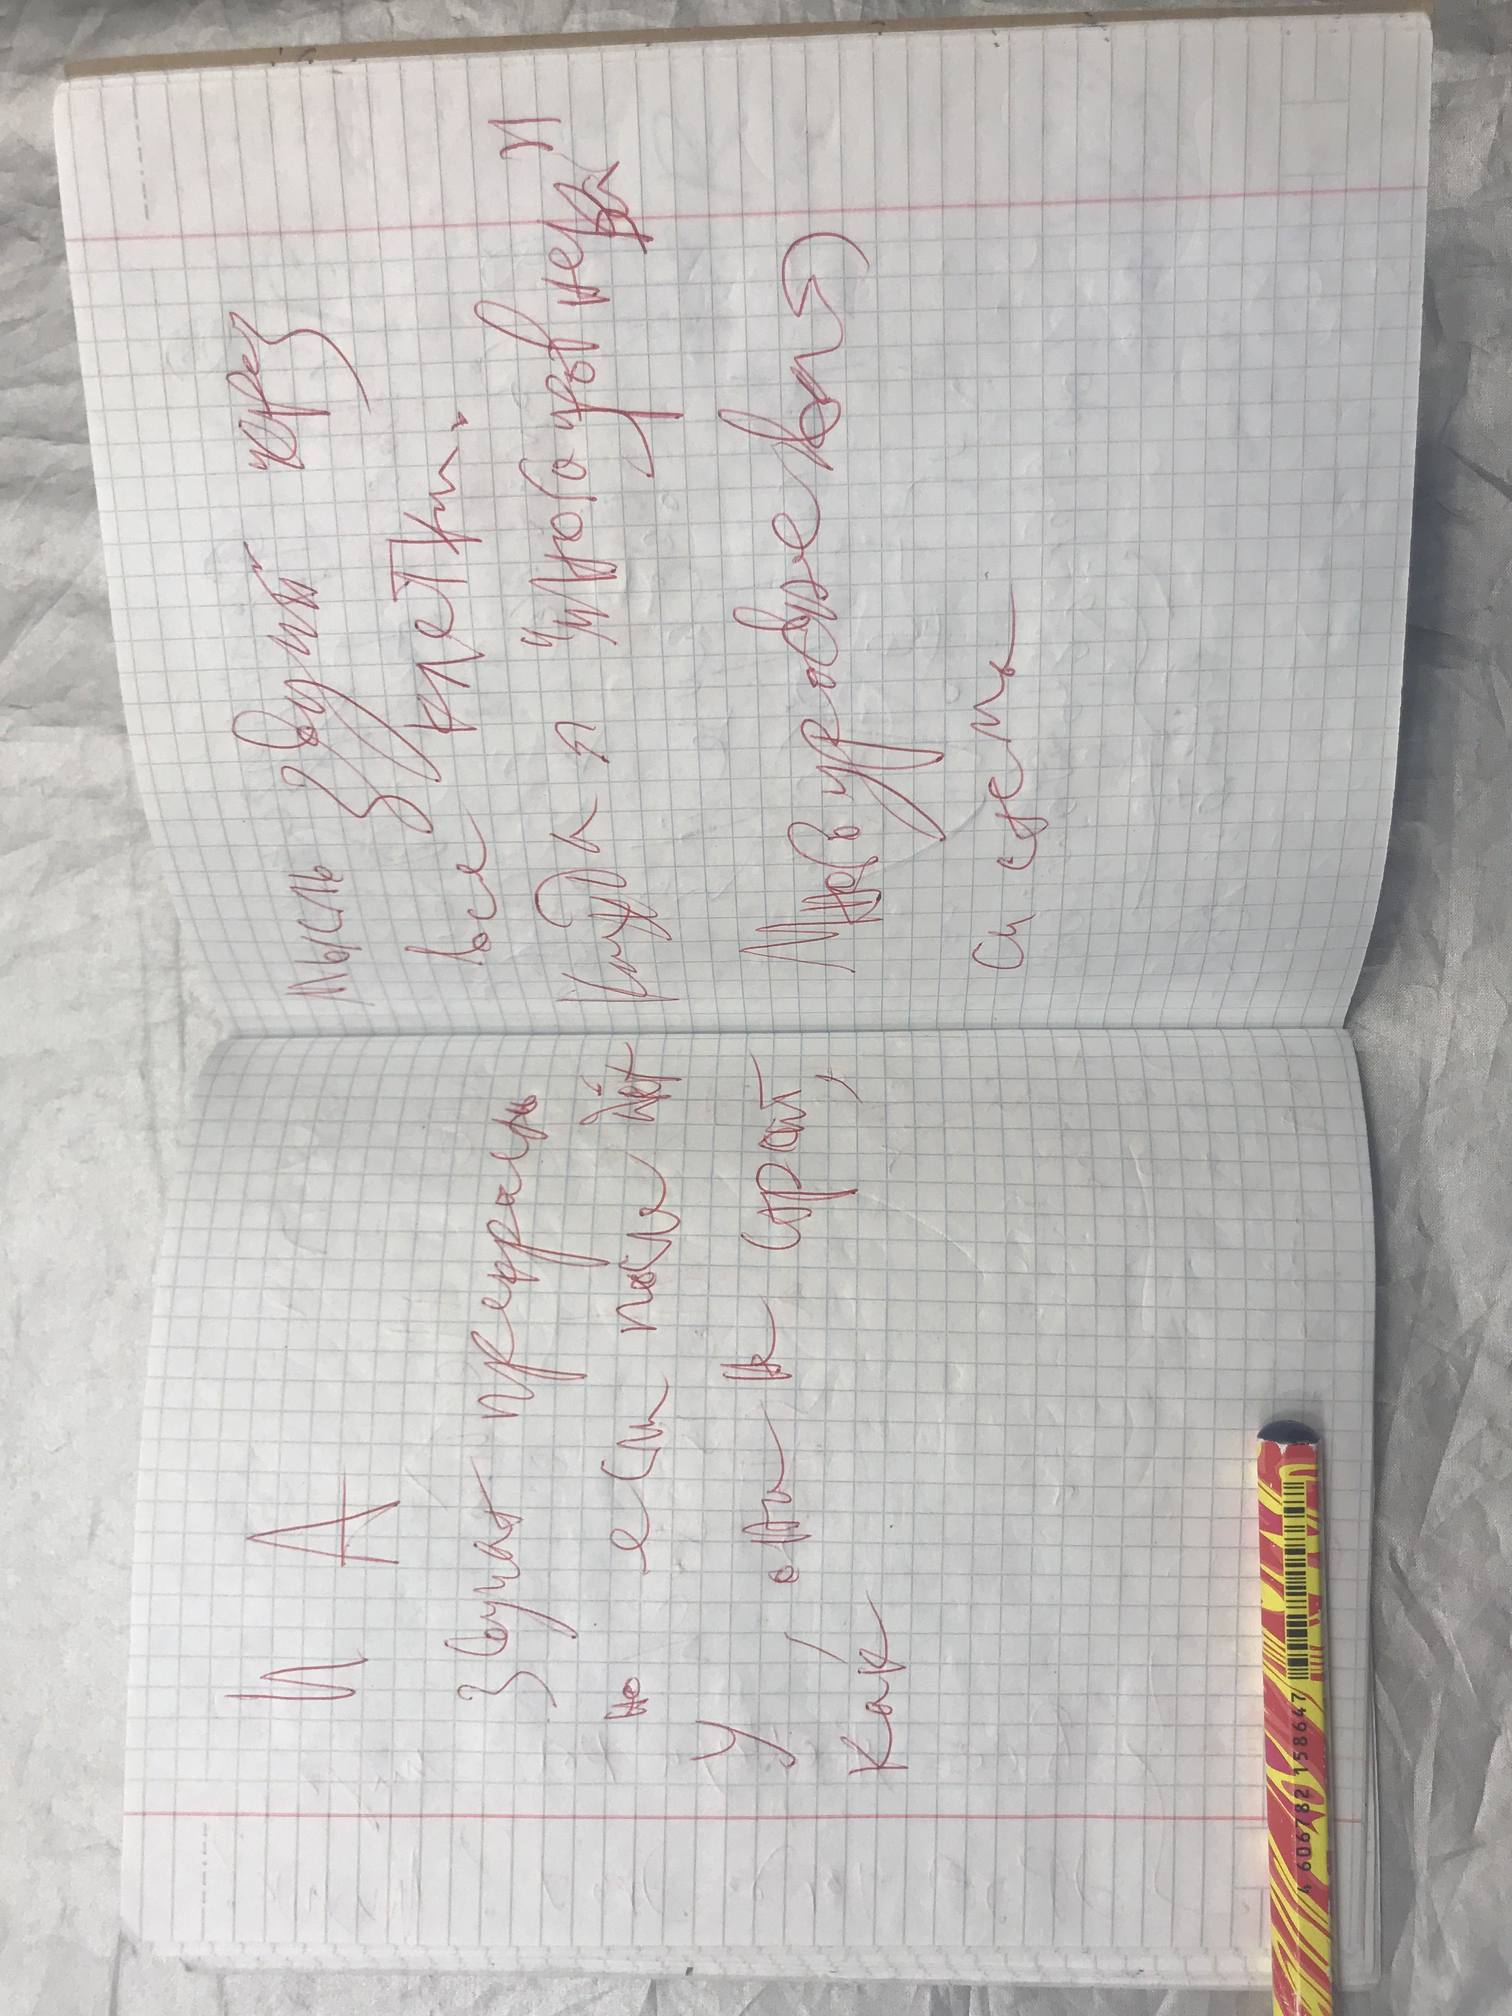 И А
Звучат прекраснь
но если после дет
У они не страй,
как
мысль звучит через
все клетки.
Куда я "многоуровневая"
Многоуровневая
система
4 606782 158647